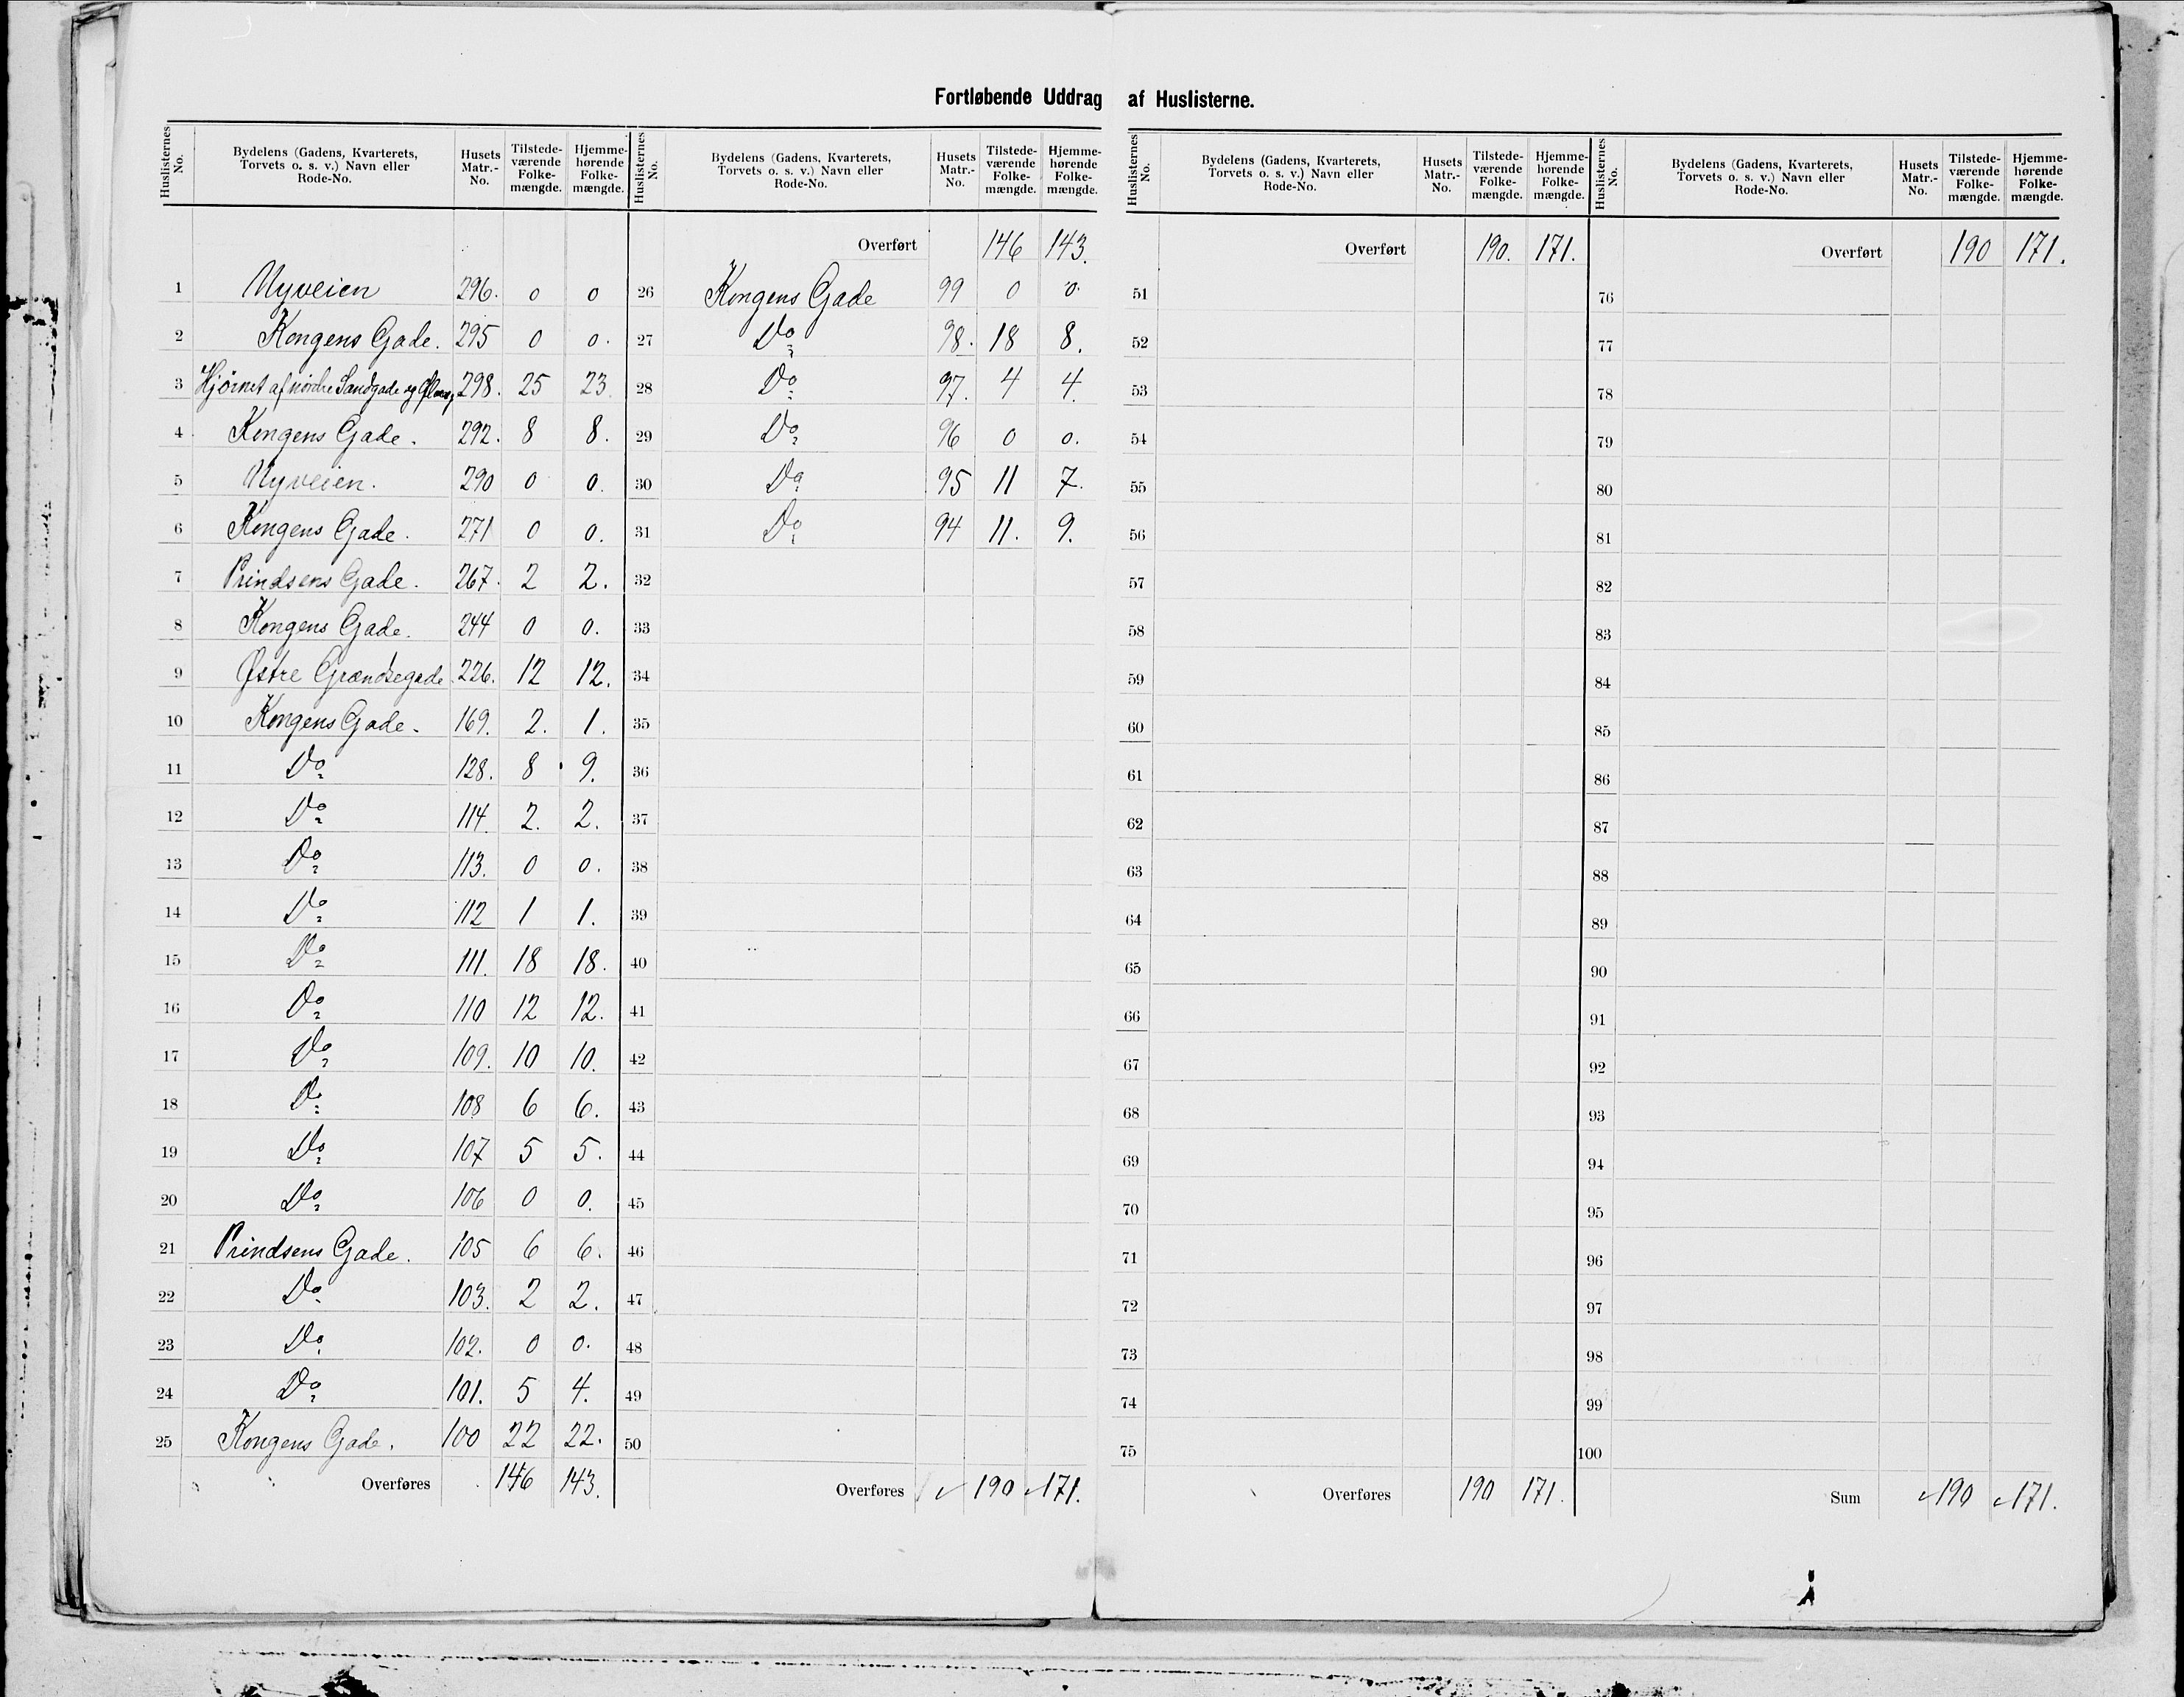 Fortløbende Uddrag af Huslisterne.
Huslisternes No. Bydelens (Gadens, Kvarterets, Torvets o. s. v.) Navn eller Rode-No. Husets Matr.-No. Tilstede-værende Folke-mængde. Hjemme-hørende Folke-mængde.
1 Nyveien 296. 0 0
2 Kongens Gade. 295 0 0.
3 Hjørnet af nordre Sandgade og 298. 25 23.
4 Kongens Gade. 292. 8 8.
5 Nyveien. 290 0 0.
6 Kongens Gade. 271 0 0.
7 Prindsens Gade. 267. 2 2.
8 Kongens Gade. 244 0 0.
9 Østre Grændsegade 226. 12 12.
10 Kongens Gade. 169. 2. 1.
11 Do 128. 8 9.
12 Do 114. 2. 2.
13 Do 113. 0 0.
14 Do 112 1 1.
15 Do 111. 18 18.
16 Do 110 12 12.
17 Do 109. 10 10.
18 Do 108 6 6.
19 Do 107 5 5.
20 Do 106 0 0.
21 Prindsens Gade. 105 6 6.
22 Do 103. 2 2.
23 Do 102. 0 0.
24 Do 101. 5 4.
25 Kongens Gade. 100 22 22.
Overføres 146 143.
Huslisternes No. Bydelens (Gadens, Kvarterets, Torvets o. s. v.) Navn eller Rode-No. Husets Matr.-No. Tilstede-værende Folke-mængde. Hjemme-hørende Folke-mængde.
Overført 146 143.
26 Kongens Gade 99 0 0.
27 Do 98. 18 8.
28 Do 97. 4 4.
29 Do 96 0 0.
30 Do 95 11 7.
31 Do 94 11. 9.
32
33
34
35
36
37
38
39
40
41
42
43
44
45
46
47
48
49
50
Overføres 190 171.
Huslisternes No. Bydelens (Gadens, Kvarterets, Torvets o. s. v.) Navn eller Rode-No. Husets Matr.-No. Tilstede-værende Folke-mængde. Hjemme-hørende Folke-mængde.
Overført 190. 171.
51
52
53
54
55
56
57
58
59
60
61
62
63
64
65
66
67
68
69
70
71
72
73
74
75
Overføres 190 171.
Huslisternes No. Bydelens (Gadens, Kvarterets, Torvets o. s. v.) Navn eller Rode-No. Husets Matr.-No. Tilstede-værende Folke-mængde. Hjemme-hørende Folke-mængde.
Overført 190 171.
76
77
78
79
80
81
82
83
84
85
86
87
88
89
90
91
92
93
94
95
96
97
98
99
100
Sum 190 171.